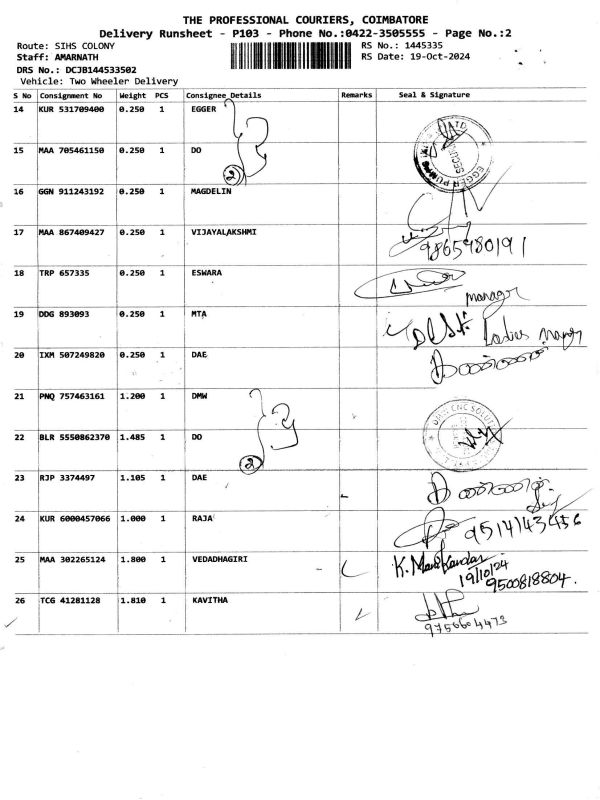 THE PROFESSIONAL COURIERS, COIMBATORE
Delivery Runsheet - P103 - Phone No.:0422-3505555 - Page No.:2
Route: SIHS COLONY RS No.: 1445335
Staff: AMARNATH RS Date: 19-Oct-2024
DRS No.: DCJB144533502
Vehicle: Two Wheeler Delivery
S No Consignment No Weight PCS Consignee Details Remarks Seal & Signature
14 KUR 531709400 0.250 1 EGGER
15 MAA 705461150 0.250 1 DO
2
EGGER PUMPS
16 GGN 911243192 0.250 1 MAGDELIN
17 MAA 867409427 0.250 1 VIJAYALAKSHMI
9865980191
18 TRP 657335 0.250 1 ESWARA
manager
19 DDG 893093 0.250 1 MTA
20 IXM 507249820 0.250 1 DAE
21 PNQ 757463161 1.200 1 DMW
CNC SOLUTIONS
22 BLR 5550862370 1.485 1 DO
2
23 RJP 3374497 1.105 1 DAE
24 KUR 6000457066 1.000 1 RAJA
9514143456
25 MAA 302265124 1.800 1 VEDADHAGIRI
K. Manikandan
19/10/24
9500818804.
26 TCG 41281128 1.810 1 KAVITHA
9750604473